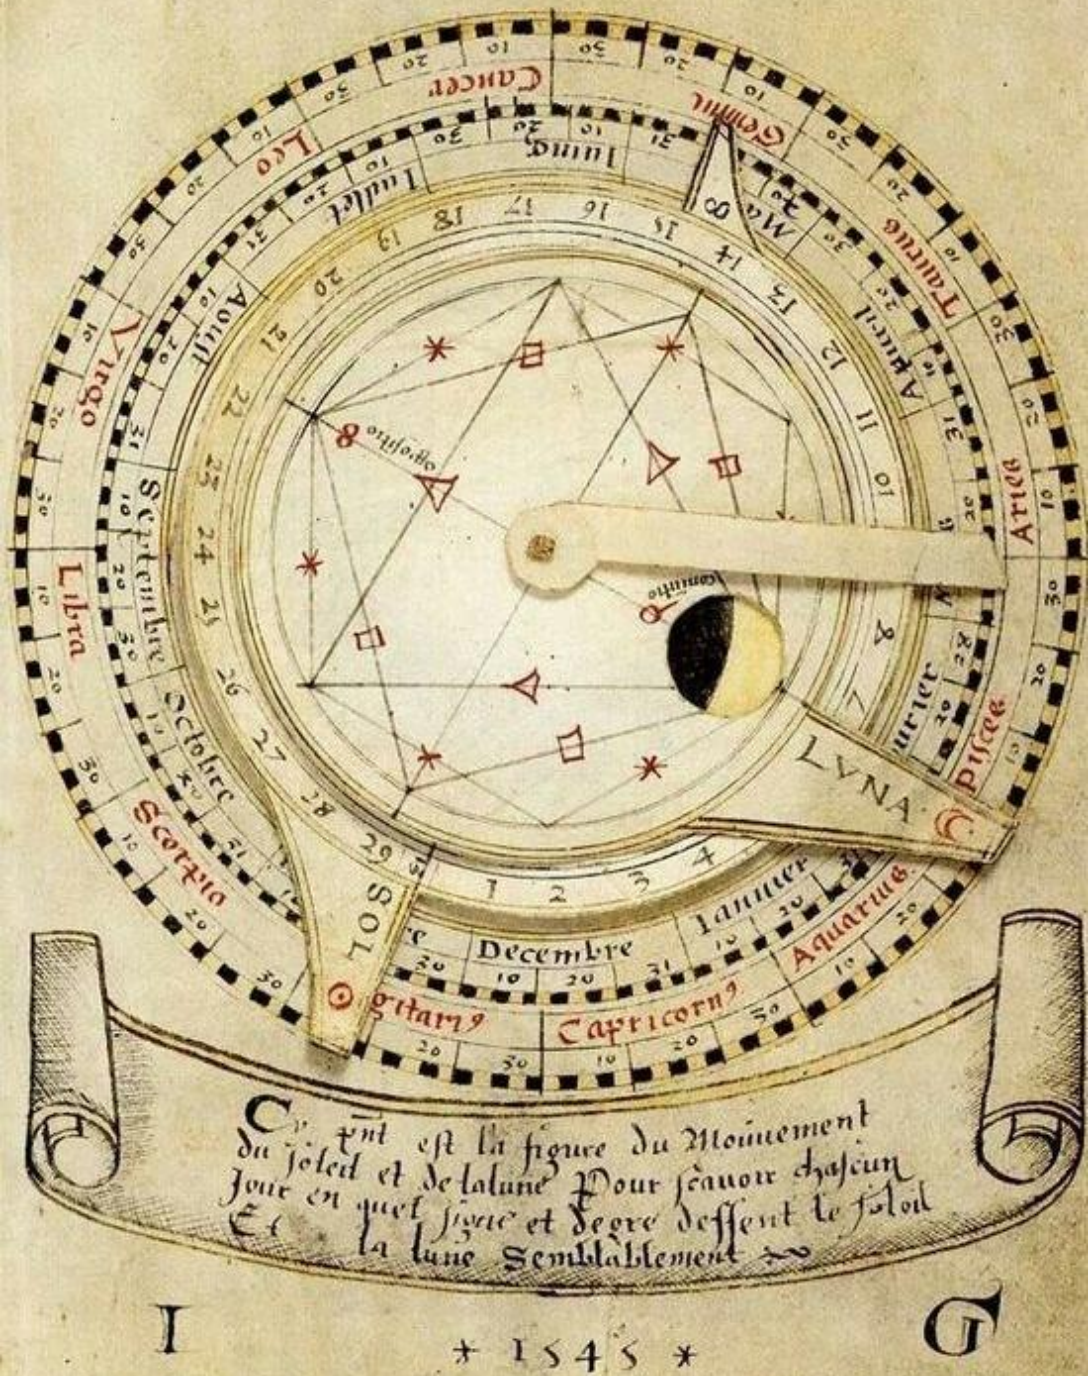 Cancer
Gemini
Taurus
Aries
Pisces
Aquarius
Capricorn9
gitari9
Scorpio
Libra
Virgo
Leo
Iuing
Ma
Apuril
urier
Ianuier
Decembre
re
Octobre
Septembre
Aoust
Iuillet
1 2 3 4 7 8 10 11 12 13 14 15 16 17 18 19 20 21 22 23 24 25 26 27 28 29
oppositio
Coniunctio
LVNA
SOL
Ce pñt est la figure du Mouuement
du soleil et de la lune Pour scauoir chascun
Jour en quel signe et degre dessent le soloil
Et la lune Semblablement
I G
* 1545 *